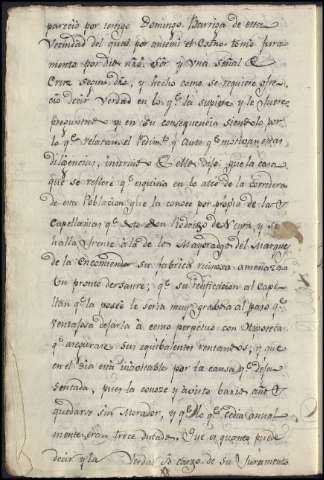 parecio por testigo Domingo Barriga de esta
Vecindad del qual por ante mi el Essno tomo Jura
mento por Dios nrô Sôr y una señal de
Cruz segun dro, y hecho como se requiere ofre
cio decir verdad en lo qe la supiere y le fuere
preguntado y en su consequencia siendolo por
lo qe relatan el Pedimto y Autto qe motivan estas
diligencias, instruido de ello dijo: que la casa
que se refiere qe esquina en lo alto de la corredera
de esta Poblacion que la conoce por propia de las
Capellanias qe goza don Rodrigo de y se
halla frente á la de los Mayorazgo del Marques
de la Encomienda su fabrica ruinosa amenaza
un pronto desastre; qe su redificacion al Cape
llan qe la posee le seria muy grabosa al paso qe
ventajosa dejarla á censo perpetuo con
qe asegurare sus equibalentes rentandos, y que
en el dia está inhabitable por la causa qe deja
sentada, pues la conoze y á visto barios años
quedarse sin Morador, y qe lo qe redia anual
mente eran trece ducados. Que es quanto puede
decir y la Verdad á cargo de su Juramento